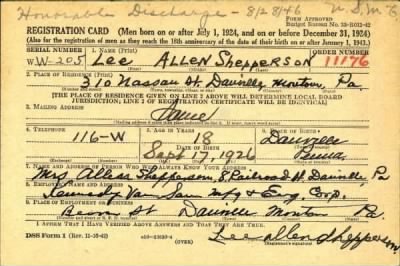 Honorable Discharge - 8/28/46 U.S.M.C.
Form Approved
Budget Bureau No. 33-R012-42
REGISTRATION CARD (Men born on or after July 1, 1924, and on or before December 31, 1924)
(Also for the registration of men as they reach the 18th anniversary of the date of their birth on or after January 1, 1943.)
SERIAL NUMBER 1. NAME (Print) ORDER NUMBER
W W-205 Lee ALLEN Shepperson 11176
2. PLACE OF RESIDENCE (Print)
310 Nassau St Danville, Montour, Pa
[THE PLACE OF RESIDENCE GIVEN ON LINE 2 ABOVE WILL DETERMINE LOCAL BOARD
JURISDICTION; LINE 2 OF REGISTRATION CERTIFICATE WILL BE IDENTICAL]
3. MAILING ADDRESS
Same
4. TELEPHONE 5. AGE IN YEARS 6. PLACE OF BIRTH
116-W 18 Danville
DATE OF BIRTH
Sept 17, 1926 Penna.
7. NAME AND ADDRESS OF PERSON WHO WILL ALWAYS KNOW YOUR ADDRESS
Mrs Allen Shepperson, E Railroad St, Danville, Pa
8. EMPLOYER'S NAME AND ADDRESS
Kennedy Van Saun Mfg & Eng. Corp.
9. PLACE OF EMPLOYMENT OR BUSINESS
St Danville Montour Pa.
I AFFIRM THAT I HAVE VERIFIED ABOVE ANSWERS AND THAT THEY ARE TRUE.
DSS Form 1 (Rev. 11-16-42) (OVER) Lee Allen Shepperson